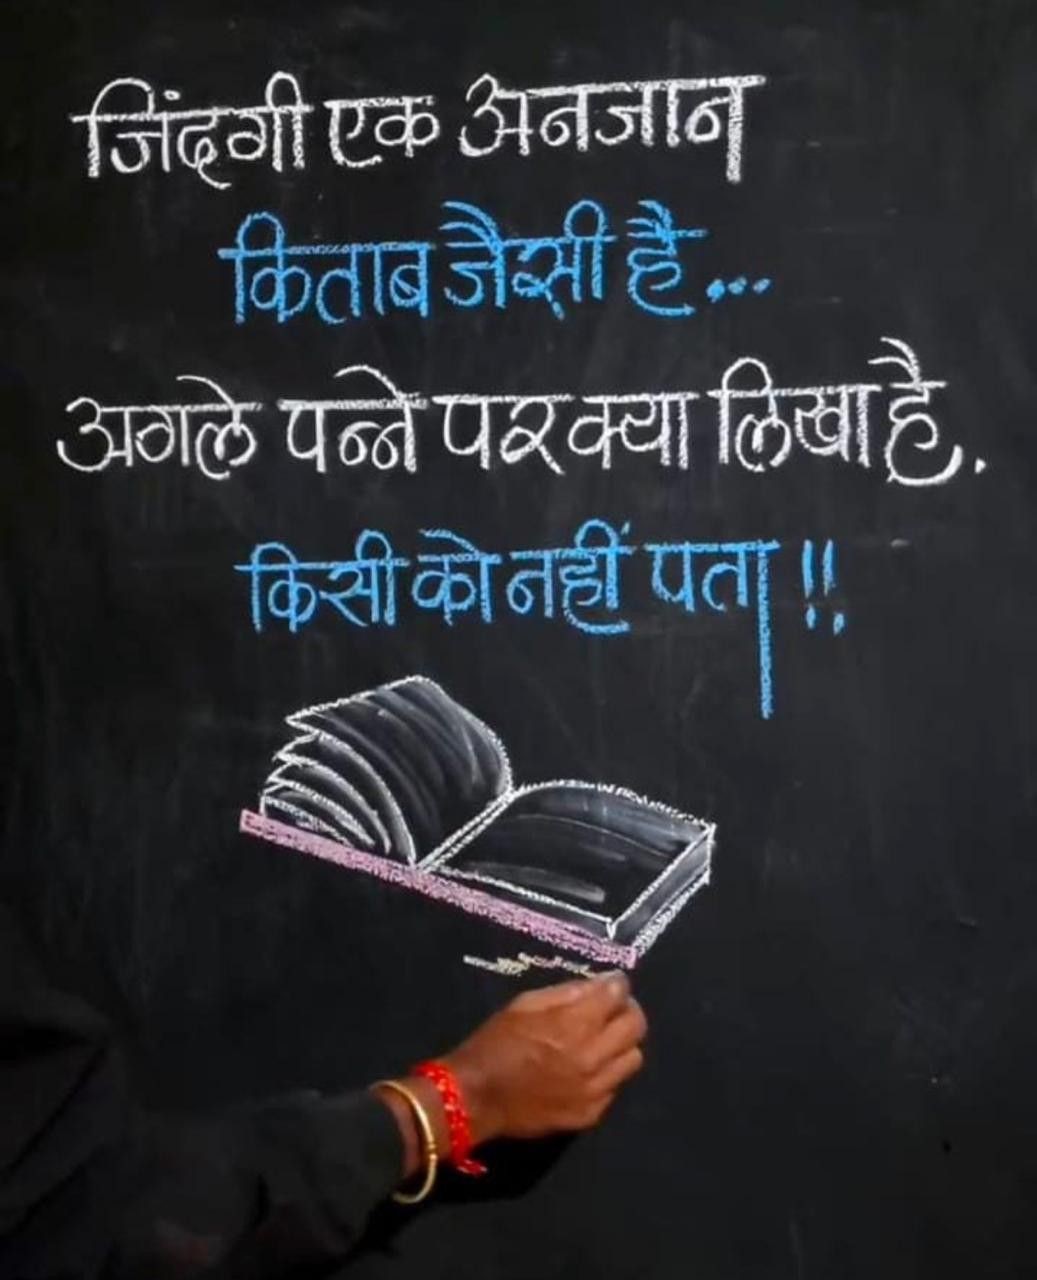 जिंदगी एक अनजान
किताब जैसी है...
अगले पन्ने पर क्या लिखा है.
किसी को नहीं पता !!